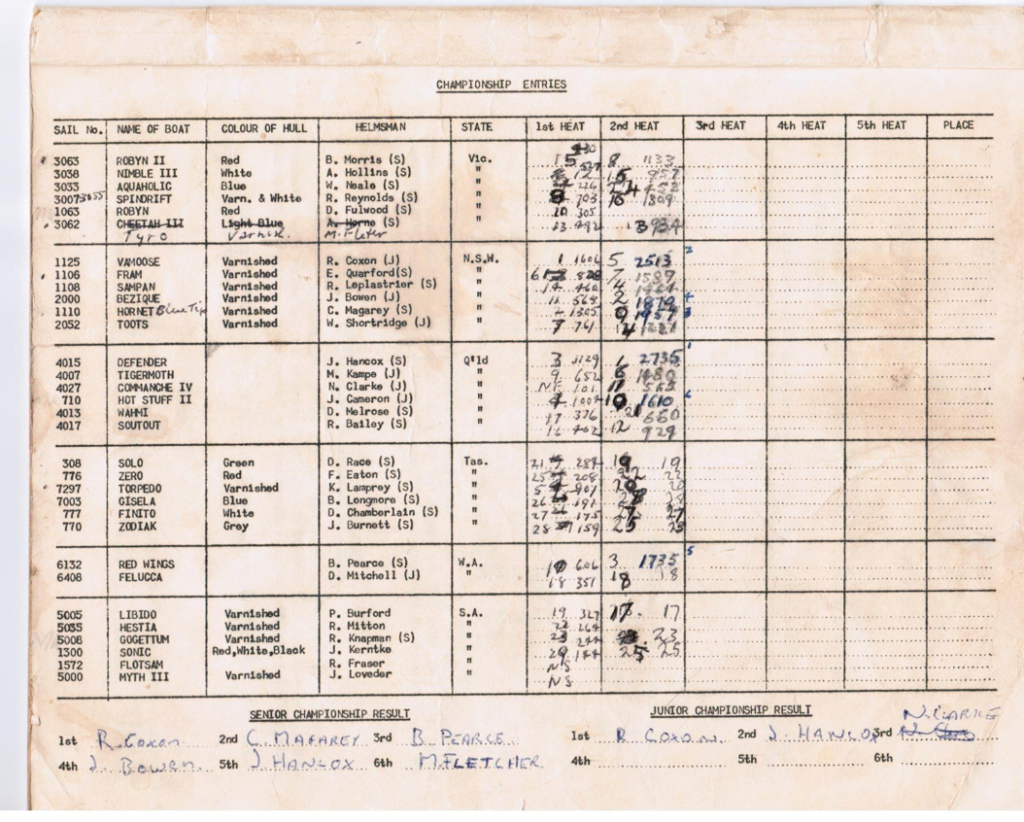 CHAMPIONSHIP ENTRIES
SAIL No. NAME OF BOAT COLOUR OF HULL HELMSMAN STATE 1st HEAT 2nd HEAT 3rd HEAT 4th HEAT 5th HEAT PLACE
3063 ROBYN II Red B. Morris (S) Vic. 8 1133
3038 NIMBLE III White A. Hollins (S) "
3033 AQUAHOLIC Blue W. Neale (S) "
3007 3055 SPINDRIFT Varn. & White R. Reynolds (S) " 8 703 16 1309
1063 ROBYN Red D. Fulwood (S) " 20 305
3062 CHEETAH III Light Blue A. Horne (S) " 13 492
Tyro Varnish.
1125 VAMOOSE Varnished R. Coxon (J) N.S.W. 1 1606 5 2513 2
1106 FRAM Varnished E. Quarford(S) " 7 1587
1108 SAMPAN Varnished R. Leplastrier (S) " 14 460 4
2000 BEZIQUE Varnished J. Bowen (J) " 11 565 2 1879 4
1110 HORNET Blue Tip Varnished C. Magarey (S) " 1305 9 1957 3
2052 TOOTS Varnished W. Shortridge (J) " 7 761 14 1221
4015 DEFENDER J. Hancox (S) Q'ld 3 1129 1 2735 1
4007 TIGERMOTH M. Kampe (J) " 9 652 6 1480
4027 COMMANCHE IV N. Clarke (J) " 101 11
710 HOT STUFF II J. Cameron (J) " 4 1004 10 1610 6
4013 WAHMI D. Melrose (S) " 17 376 21 650
4017 SOUTOUT R. Bailey (S) " 16 402 12 929
308 SOLO Green D. Race (S) Tas. 21 284 19 19
776 ZERO Red F. Eaton (S) " 25 208 22 22
7297 TORPEDO Varnished K. Lamprey (S) " 5 907 20 20
7003 GISELA Blue B. Longmore (S) " 26 191 28 28
777 FINITO White D. Chamberlain (S) " 27 175 27 27
770 ZODIAK Grey J. Burnett (S) " 28 159 25 25
6132 RED WINGS B. Pearce (S) W.A. 10 606 3 1735 5
6408 FELUCCA D. Mitchell (J) " 18 351 18 18
5005 LIBIDO Varnished P. Burford S.A. 19 327 17 17
5035 HESTIA Varnished R. Mitton " 22 264
5008 GOGETTUM Varnished R. Knapman (S) " 23 244 23
1300 SONIC Red,White,Black J. Kerntke " 29 144 25 25
1572 FLOTSAM R. Fraser " NS
5000 MYTH III Varnished J. Loveder " NS
SENIOR CHAMPIONSHIP RESULT
1st R. Coxon 2nd C. MAGAREY 3rd B PEARCE
4th J. BOWEN 5th J. HANCOX 6th M. FLETCHER
JUNIOR CHAMPIONSHIP RESULT
N. CLARKE
1st R COXON 2nd J. HANCOX 3rd
4th 5th 6th